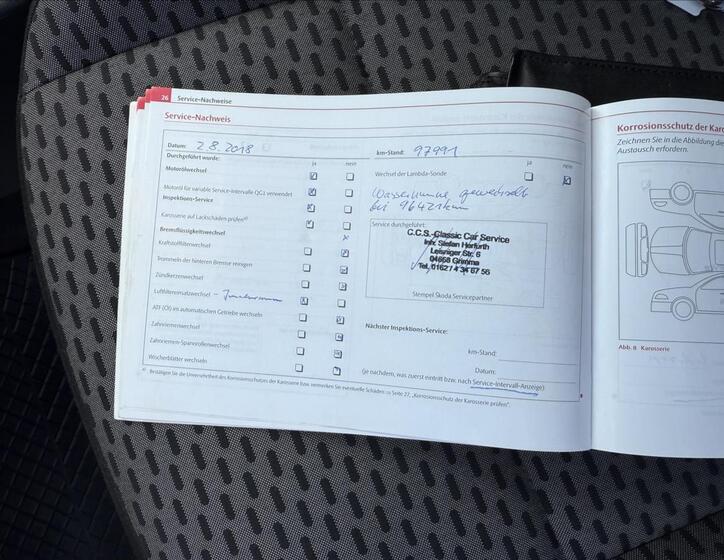 26 Service-Nachweise
Service-Nachweis
Datum: 2.8.2018
Durchgeführt wurde: ja nein
Motorölwechsel
Motoröl für variable Service-Intervalle QG1 verwendet
Inspektions-Service
Karosserie auf Lackschäden prüfen
Bremsflüssigkeitswechsel
Kraftstofffilterwechsel
Trommeln der hinteren Bremse reinigen
Zündkerzenwechsel
Luftfiltereinsatzwechsel -
ATF (Öl) im automatischen Getriebe wechseln
Zahnriemenwechsel
Zahnriemen-Spannrollenwechsel
Wischerblätter wechseln
km-Stand: 97991
ja nein
Wechsel der Lambda-Sonde
Wasserpumpe gewechselt
bei 96421km
Service durchgeführt:
C.C.S.-Classic Car Service
Inh. Stefan Herfurth
Leisniger Str. 6
04668 Grimma
Tel. 0162 / 4 34 67 56
Stempel Skoda Servicepartner
Nächster Inspektions-Service:
km-Stand:
Datum:
(je nachdem, was zuerst eintritt bzw. nach Service-Intervall-Anzeige)
Bestätigen Sie die Unversehrtheit des Korrosionsschutzes der Karosserie bzw. vermerken Sie eventuelle Schäden zu Seite 27, „Korrosionsschutz der Karosserie prüfen".
Korrosionsschutz der Kar
Zeichnen Sie in die Abbildung die
Austausch erfordern.
Abb. 8 Karosserie